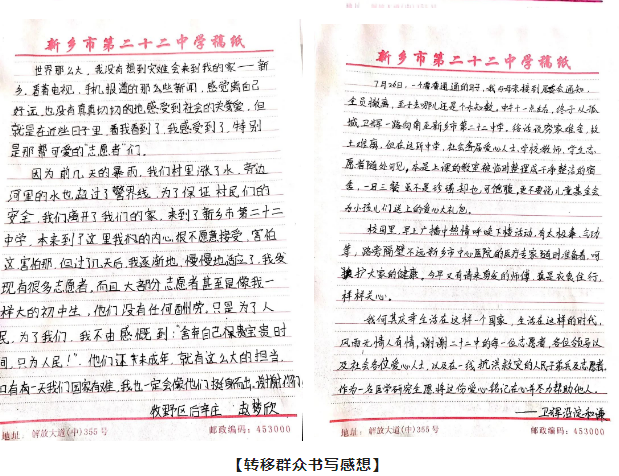 新乡市第二十二中学稿纸
世界那么大，我没有想到灾难会来到我的家——新
乡。看着电视，手机报道的那么些新闻，感觉离自己
好远，也没有真真切切的地感受到社会的关爱，但
就是在近些日子里，看我看到了，我感受到了，特别
是那帮可爱的"志愿者"们。
因为前几天的暴雨，我们村里涨了水，旁边
河里的水也超过了警界线，为了保证村民们的
安全，我们离开了我们的家，来到了新乡市第二十二
中学，本来到了这里我的内心很不愿意接受，害怕
这害怕那，但过了几天后，我逐渐地，慢慢地适应了，我发
现有很多志愿者，而且大部分志愿者甚至是像我一
样大的初中生，他们没有任何酬劳，只是为了人
民，为了我们，我不由感慨到："舍弃自己保贵时
间，只为人民！"，他们还未成年，就有这么大的担当，
有一天我们国家有难，我也一定会像他们挺身而出，谢谢你们
牧野区后辛庄 赵梦欣
地址：解放大道(中)355号 邮政编码：453000
新乡市第二十二中学稿纸
7月26日，一个普普通通的日子，我与母亲接到居委会通知，
全员搬离，至于去哪儿还是个未知数。中午十一点左右，终于从孤
城卫辉一路向南至新乡市第二十二中学，俗话说穷家难舍，故
土难离，但在这所中学，社会各届爱心人士，学校教师，学生志
愿者随处可见，本是上课的教室被临时整理成干净整洁的宿
舍，一日三餐虽不是珍馐却也可饱腹，更不要说儿童基金会
为小孩儿们送上的爱心大礼包。
校园里，早上广播中热情呼唤下楼活动，有太极拳、气功
等，路旁隔壁不远新乡市中心医院的医疗专家随时准备着，可
护大家的健康，今早又有请来剪发的师傅，真是衣食住行，
样样关心。
我何其庆幸生活在这样一个国家，生活在这样的时代，
风雨无情人有情，谢谢二十二中的每一位志愿者，各位领导以
及社会各位爱心人士，以及在一线抗洪救灾的人民子弟兵及志愿者，
作为一名医学研究生愿将这份爱心铭记在心并尽力帮助他人。
——卫辉沿淀和谦
地址：解放大道(中)355号 邮政编码：453000
【转移群众书写感想】